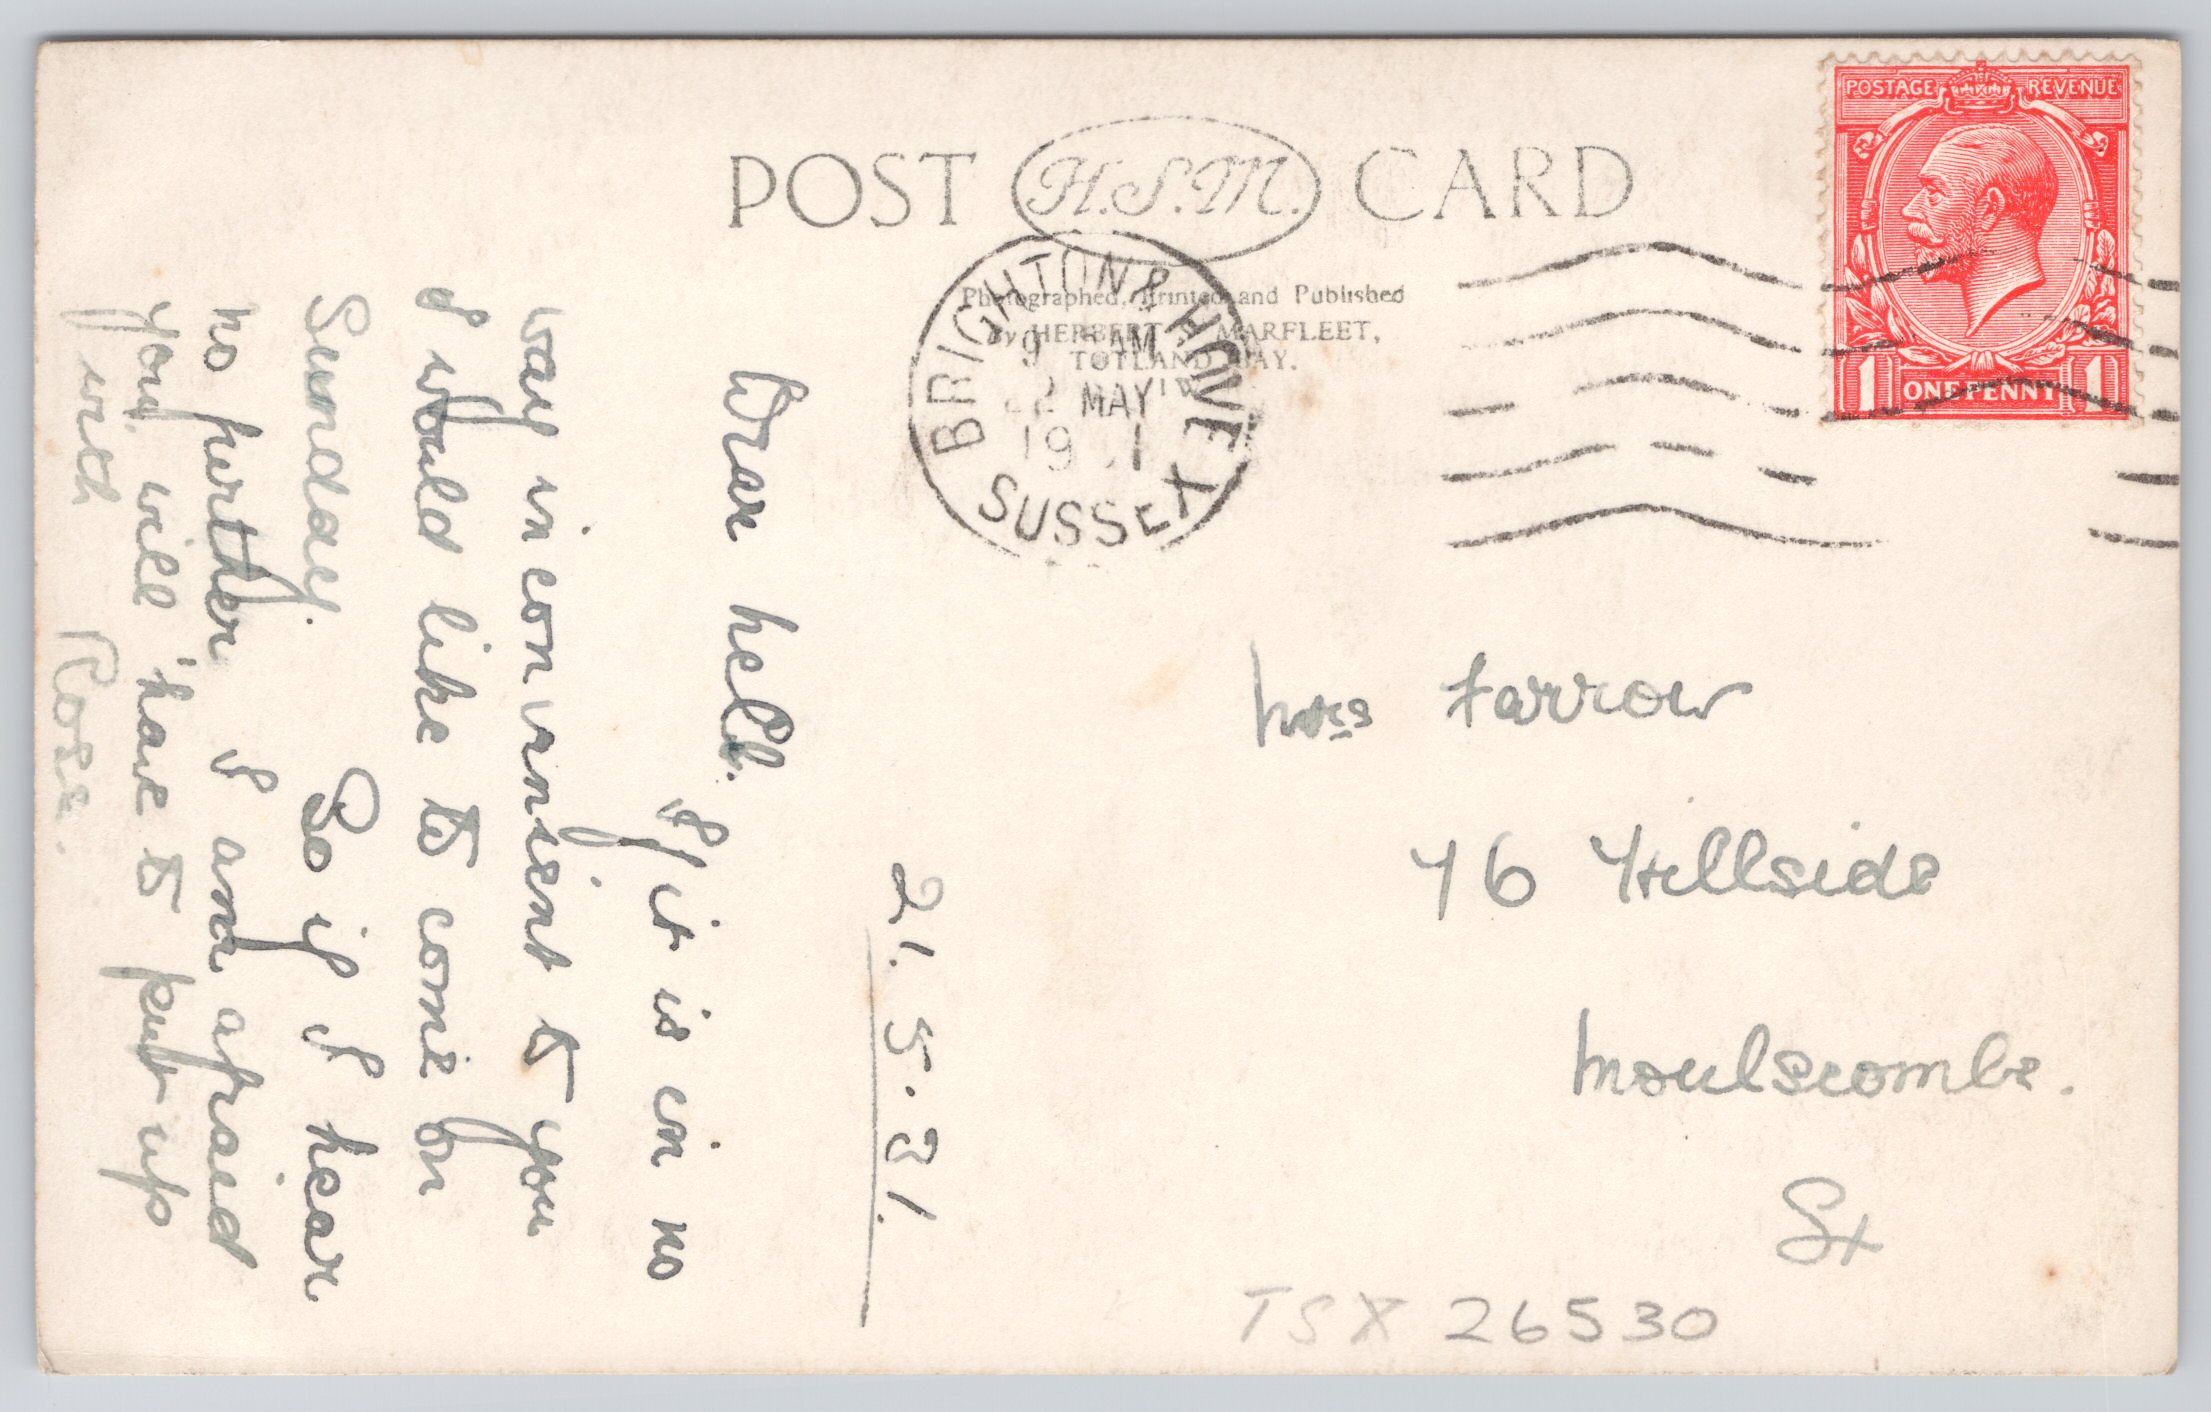 POST H.S.M. CARD
Photographed, Printed and Published
by HERBERT S. MARFLEET,
TOTLAND BAY.
BRIGHTON & HOVE
SUSSEX
9 AM
22 MAY
19 1
POSTAGE REVENUE
1 ONE PENNY 1
21.5.31.
Dear Nell. If it is in no
way inconvinient to you
I would like to come on
Sunday. So if I hear
no further I am afraid
you will have to put up
with Rose.
Mrs Farrow
76 Hillside
Moulscombe.
Sx
TSX 26530